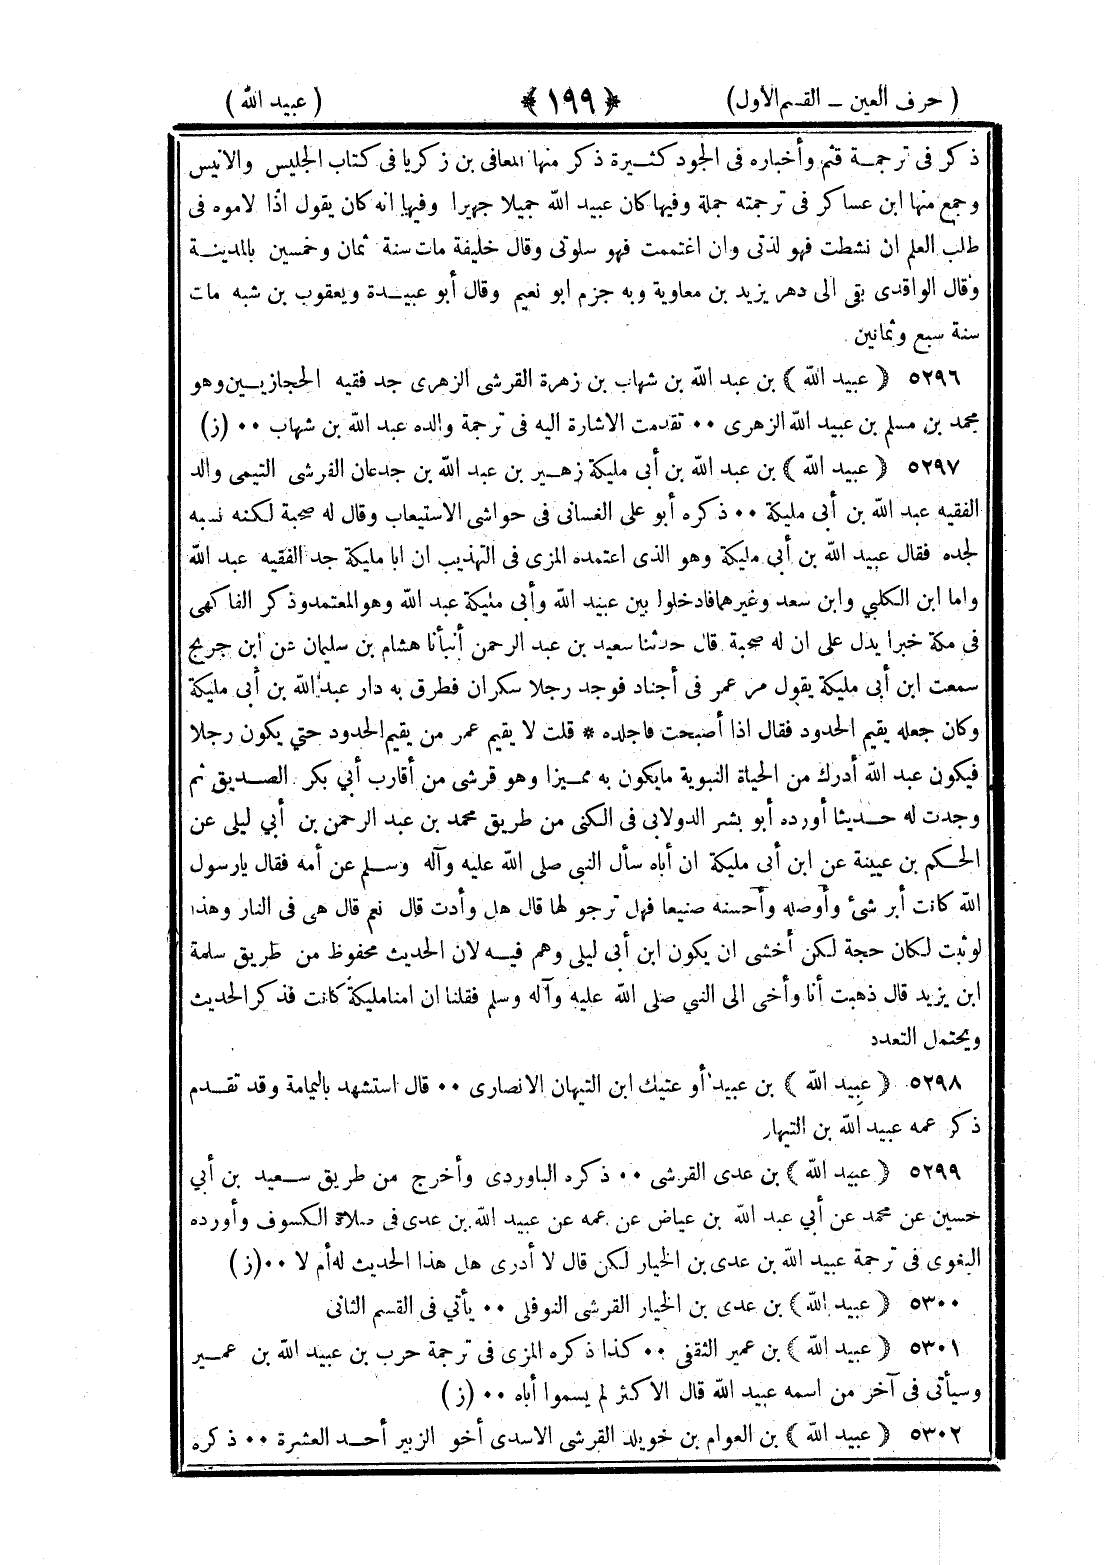 ( حرف العين – القسم الأول) ﴿ ١٩٩ ﴾ ( عبيد الله )
ذكر فى ترجمة قثم وأخباره فى الجود كثيرة ذكر منها المعافى بن زكريا فى كتاب الجليس والانيس
وجمع منها ابن عساكر فى ترجمته جملة وفيها كان عبيد الله جميلا جهيرا وفيها انه كان يقول اذا لاموه فى
طلب العلم ان نشطت فهو لذتى وان اغتممت فهو سلوتى وقال خليفة مات سنة ثمان وخمسين بالمدينة
وقال الواقدى بقى الى دهر يزيد بن معاوية وبه جزم ابو نعيم وقال أبو عبيدة ويعقوب بن شبه مات
سنة سبع وثمانين
٥٢٩٦ ﴿ عبيد الله ﴾ بن عبد الله بن شهاب بن زهرة القرشى الزهرى جد فقيه الحجازيين وهو
محمد بن مسلم بن عبيد الله الزهرى ٠٠ تقدمت الاشارة اليه فى ترجمة والده عبد الله بن شهاب ٠٠ (ز)
٥٢٩٧ ﴿ عبيد الله ﴾ بن عبد الله بن أبى مليكة زهير بن عبد الله بن جدعان القرشى التيمى والد
الفقيه عبد الله بن أبى مليكة ٠٠ ذكره أبو على الغسانى فى حواشى الاستيعاب وقال له صحبة لكنه نسبه
لجده فقال عبيد الله بن أبى مليكة وهو الذى اعتمده المزى فى التهذيب ان ابا مليكة جد الفقيه عبد الله
واما ابن الكلبي وابن سعد وغيرهما فادخلوا بين عبيد الله وأبى مليكة عبد الله وهو المعتمد وذكر الفاكهى
فى مكة خبرا يدل على ان له صحبة قال حدثنا سعيد بن عبد الرحمن أنبأنا هشام بن سليمان عن ابن جريج
سمعت ابن أبى مليكة يقول مر عمر فى أجناد فوجد رجلا سكران فطرق به دار عبد الله بن أبى مليكة
وكان جعله يقيم الحدود فقال اذا أصبحت فاجلده * قلت لا يقيم عمر من يقيم الحدود حتي يكون رجلا
فيكون عبد الله أدرك من الحياة النبوية مايكون به مميزا وهو قرشى من أقارب أبي بكر الصديق ثم
وجدت له حديثا أورده أبو بشر الدولابى فى الكنى من طريق محمد بن عبد الرحمن بن أبي ليلى عن
الحكم بن عيينة عن ابن أبى مليكة ان أباه سأل النبى صلى الله عليه وآله وسلم عن أمه فقال يارسول
الله كانت أبر شئ وأوصله وأحسنه صنيعا فهل ترجو لها قال هل وأدت قال نعم قال هى فى النار وهذا
لو ثبت لكان حجة لكن أخشى ان يكون ابن أبى ليلى وهم فيه لان الحديث محفوظ من طريق سلمة
ابن يزيد قال ذهبت أنا وأخى الى النبي صلى الله عليه وآله وسلم فقلنا ان امنا مليكة كانت فذكر الحديث
ويحتمل التعدد
٥٢٩٨ ﴿ عبيد الله ﴾ بن عبيد أو عتيك ابن التيهان الانصارى ٠٠ قال استشهد باليمامة وقد تقدم
ذكر عمه عبيد الله بن التيهان
٥٢٩٩ ﴿ عبيد الله ﴾ بن عدى القرشى ٠٠ ذكره الباوردى وأخرج من طريق سعيد بن أبي
حسين عن محمد عن أبي عبد الله بن عياض عن عمه عن عبيد الله بن عدى فى صلاة الكسوف وأورده
البغوى فى ترجمة عبيد الله بن عدى بن الخيار لكن قال لا أدرى هل هذا الحديث له أم لا ٠٠ (ز)
٥٣٠٠ ﴿ عبيد الله ﴾ بن عدى بن الخيار القرشى النوفلى ٠٠ يأتي فى القسم الثانى
٥٣٠١ ﴿ عبيد الله ﴾ بن عمير الثقفى ٠٠ كذا ذكره المزى فى ترجمة حرب بن عبيد الله بن عمير
وسيأتى فى آخر من اسمه عبيد الله قال الاكثر لم يسموا أباه ٠٠ (ز)
٥٣٠٢ ﴿ عبيد الله ﴾ بن العوام بن خويلد القرشى الاسدى أخو الزبير أحد العشرة ٠٠ ذكره